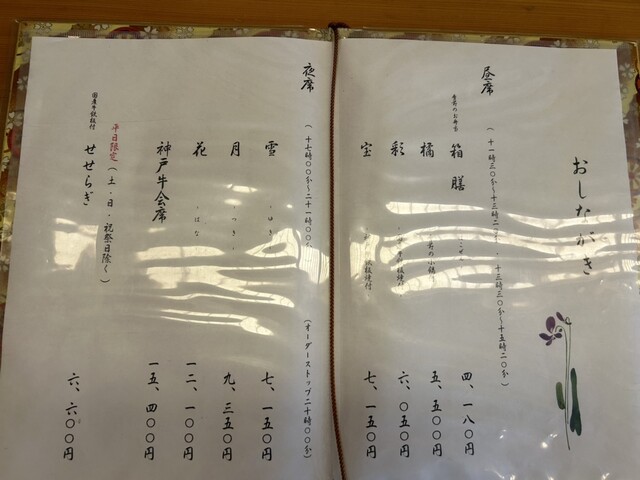 おしながき
昼席
(十一時三〇分～十三時二〇分・十三時三〇分～十五時二〇分)
箱膳
四、一八〇円
橘
五、五〇〇円
彩
六、〇五〇円
宝
七、一五〇円
夜席
(十七時〇〇分～二十一時〇〇分)
(オーダーストップ二十時〇〇分)
雪 ・ゆき・
七、一五〇円
月 ・つき・
九、三五〇円
花 ・はな・
一二、一〇〇円
神戸牛会席
一五、四〇〇円
平日限定(土・日・祝祭日除く)
国産牛鉄板付
せせらぎ
六、六〇〇円